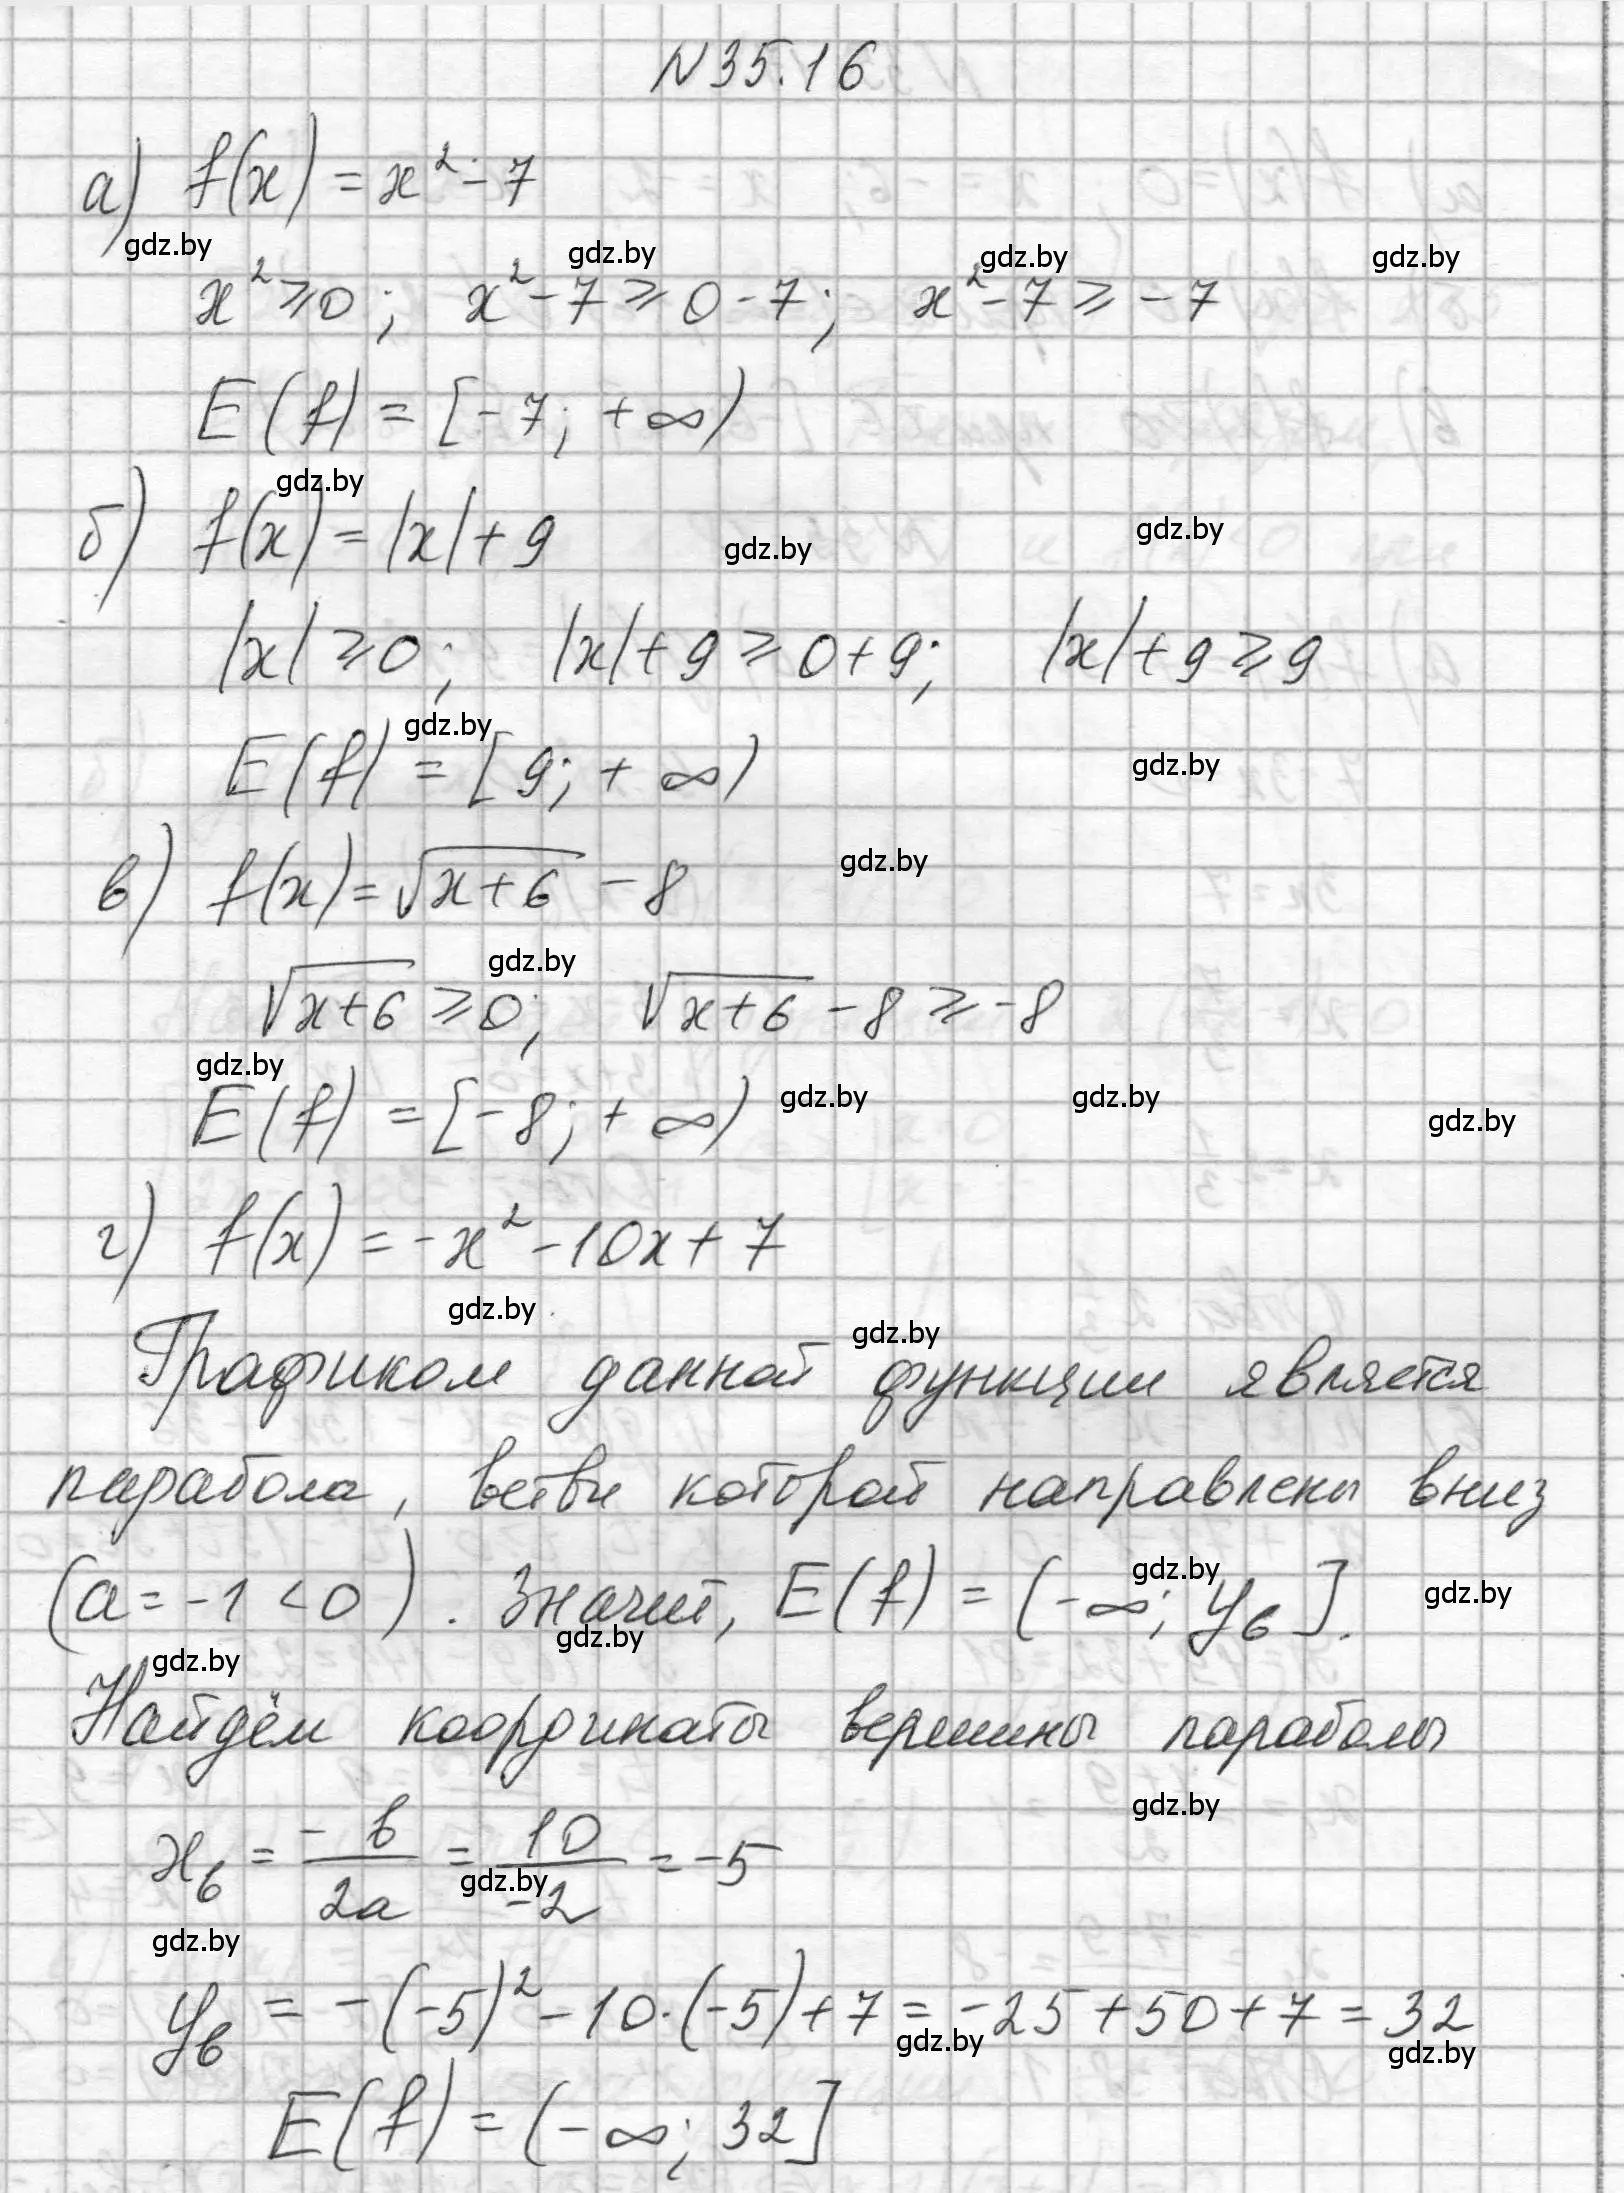 N35.16
а) f(x) = x² - 7
gdz.by gdz.by gdz.by gdz.by
x² ⩾ 0; x² - 7 ⩾ 0 - 7; x² - 7 ⩾ -7
E(f) = [-7; +∞)
gdz.by
б) f(x) = |x| + 9
gdz.by gdz.by
|x| ⩾ 0; |x| + 9 ⩾ 0 + 9; |x| + 9 ⩾ 9
gdz.by
E(f) = [9; +∞)
gdz.by
в) f(x) = √(x+6) - 8
gdz.by
gdz.by
√(x+6) ⩾ 0; √(x+6) - 8 ⩾ -8
gdz.by
E(f) = [-8; +∞)
gdz.by gdz.by gdz.by
г) f(x) = -x² - 10x + 7
gdz.by gdz.by
Графиком данной функции является
парабола, ветви которой направлены вниз
(a = -1 < 0). Значит, E(f) = (-∞; yв].
gdz.by gdz.by
gdz.by gdz.by
Найдём координаты вершины параболы
gdz.by
xв = -b/2a = 10/-2 = -5
gdz.by
gdz.by
yв = -(-5)² - 10·(-5) + 7 = -25 + 50 + 7 = 32
gdz.by gdz.by
E(f) = (-∞; 32]